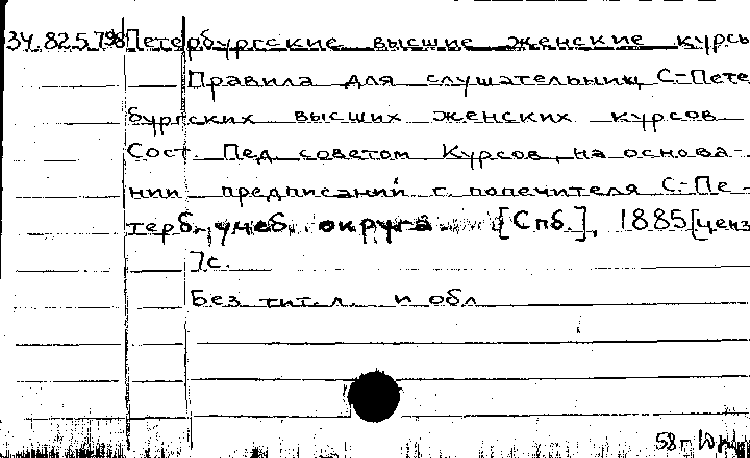 34.825.798 Петербургские высшие женские курсы
Правила для слушательниц С-Пете
бургских высших женских курсов
Сост. Пед. советом Курсов, на основа-
нии предписаний г. попечителя С-Пе-
терб. учеб. округа [Спб.], 1885 [ценз
]с.
Без тит. л. и обл
58г